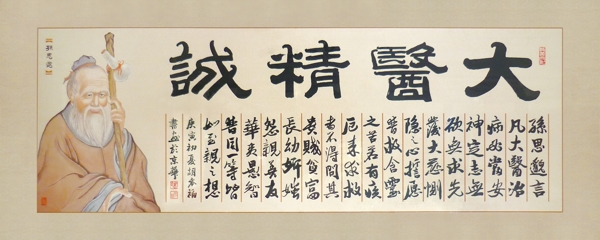 大醫精誠
孫思邈言
凡大醫治
病必當安
神定志無
欲無求先
發大慈惻
隱之心誓願
普救含靈
之苦若有疾
厄來求救
者不得問其
貴賤貧富
長幼妍媸
怨親善友
華夷愚智
普同一等皆
如至親之想
庚寅初夏胡
書畫於京華
孫思邈